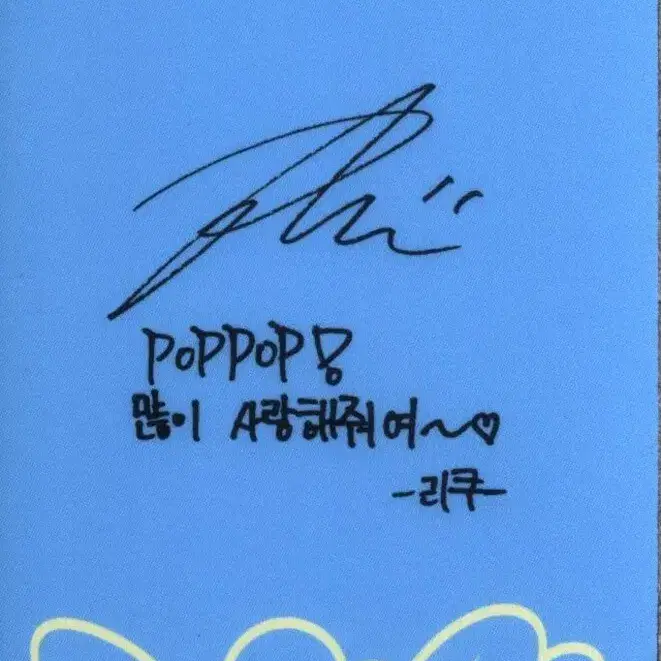 POPPOP!
많이 A랑해줘여~♡
-리쿠-